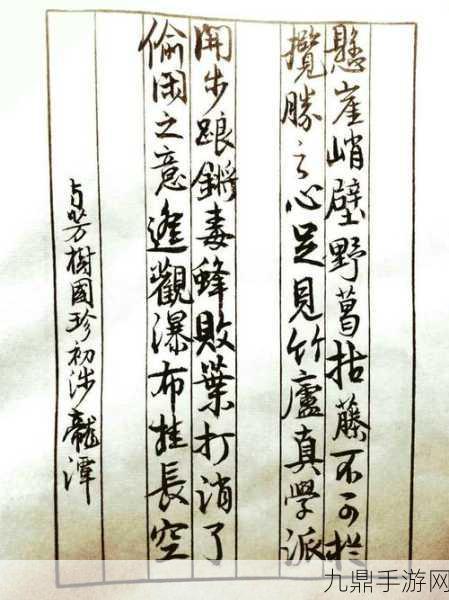 懸崖峭壁野葛枯藤不可拦
攬勝之心足見竹廬真學派
閒步踉鏘毒蜂敗葉打消了
偷閑之意遙觀瀑布挂長空
与芳樹國珍初涉龍潭
九鼎手游网